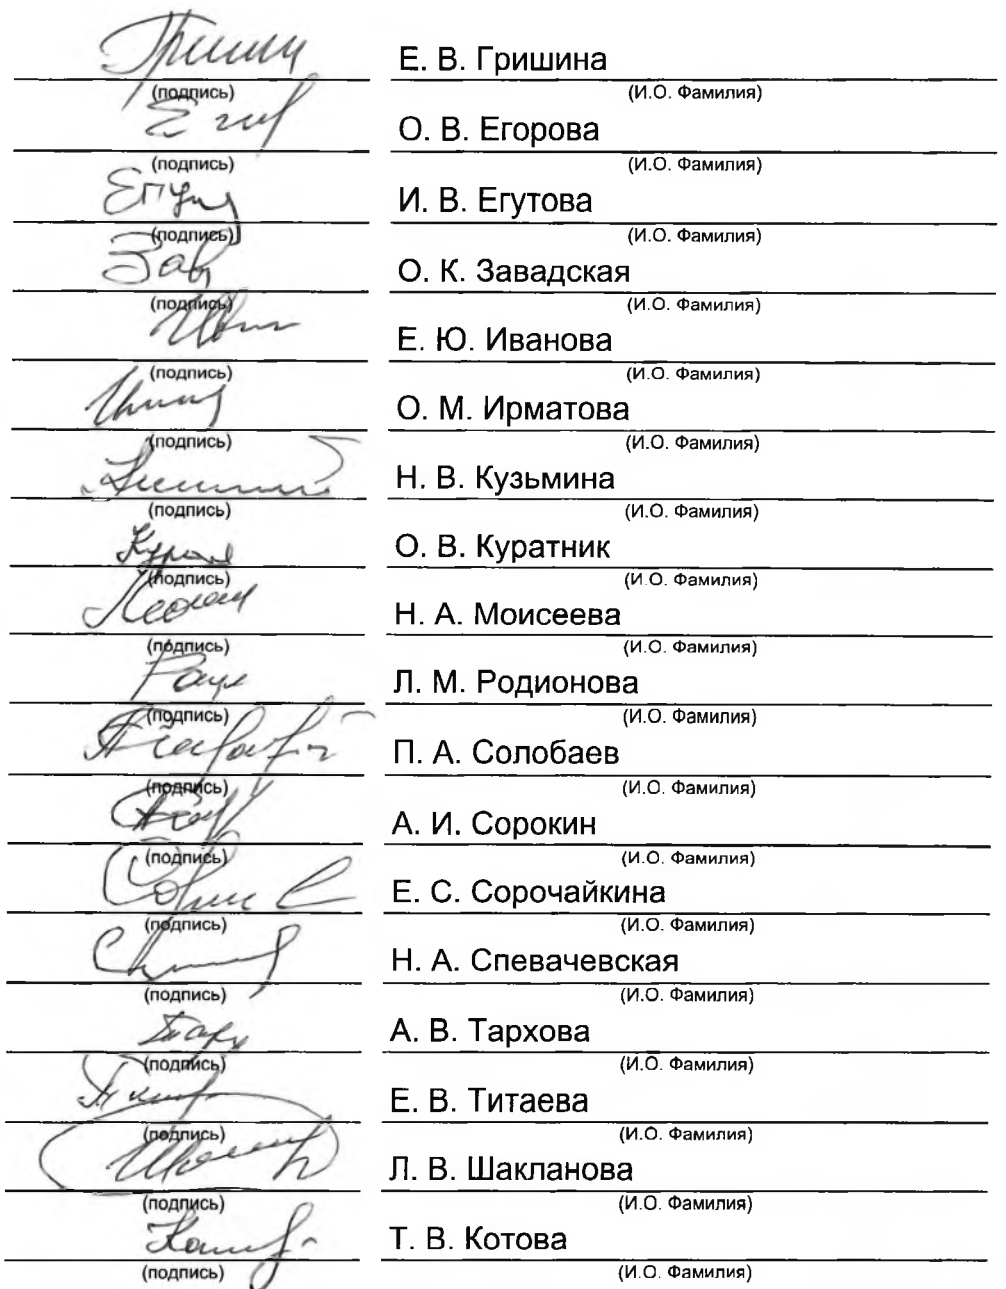 Е. В. Гришина
(подпись) (И.О. Фамилия)
О. В. Егорова
(подпись) (И.О. Фамилия)
И. В. Егутова
(подпись) (И.О. Фамилия)
О. К. Завадская
(подпись) (И.О. Фамилия)
Е. Ю. Иванова
(подпись) (И.О. Фамилия)
О. М. Ирматова
(подпись) (И.О. Фамилия)
Н. В. Кузьмина
(подпись) (И.О. Фамилия)
О. В. Куратник
(подпись) (И.О. Фамилия)
Н. А. Моисеева
(подпись) (И.О. Фамилия)
Л. М. Родионова
(подпись) (И.О. Фамилия)
П. А. Солобаев
(подпись) (И.О. Фамилия)
А. И. Сорокин
(подпись) (И.О. Фамилия)
Е. С. Сорочайкина
(подпись) (И.О. Фамилия)
Н. А. Спевачевская
(подпись) (И.О. Фамилия)
А. В. Тархова
(подпись) (И.О. Фамилия)
Е. В. Титаева
(подпись) (И.О. Фамилия)
Л. В. Шакланова
(подпись) (И.О. Фамилия)
Т. В. Котова
(подпись) (И.О. Фамилия)